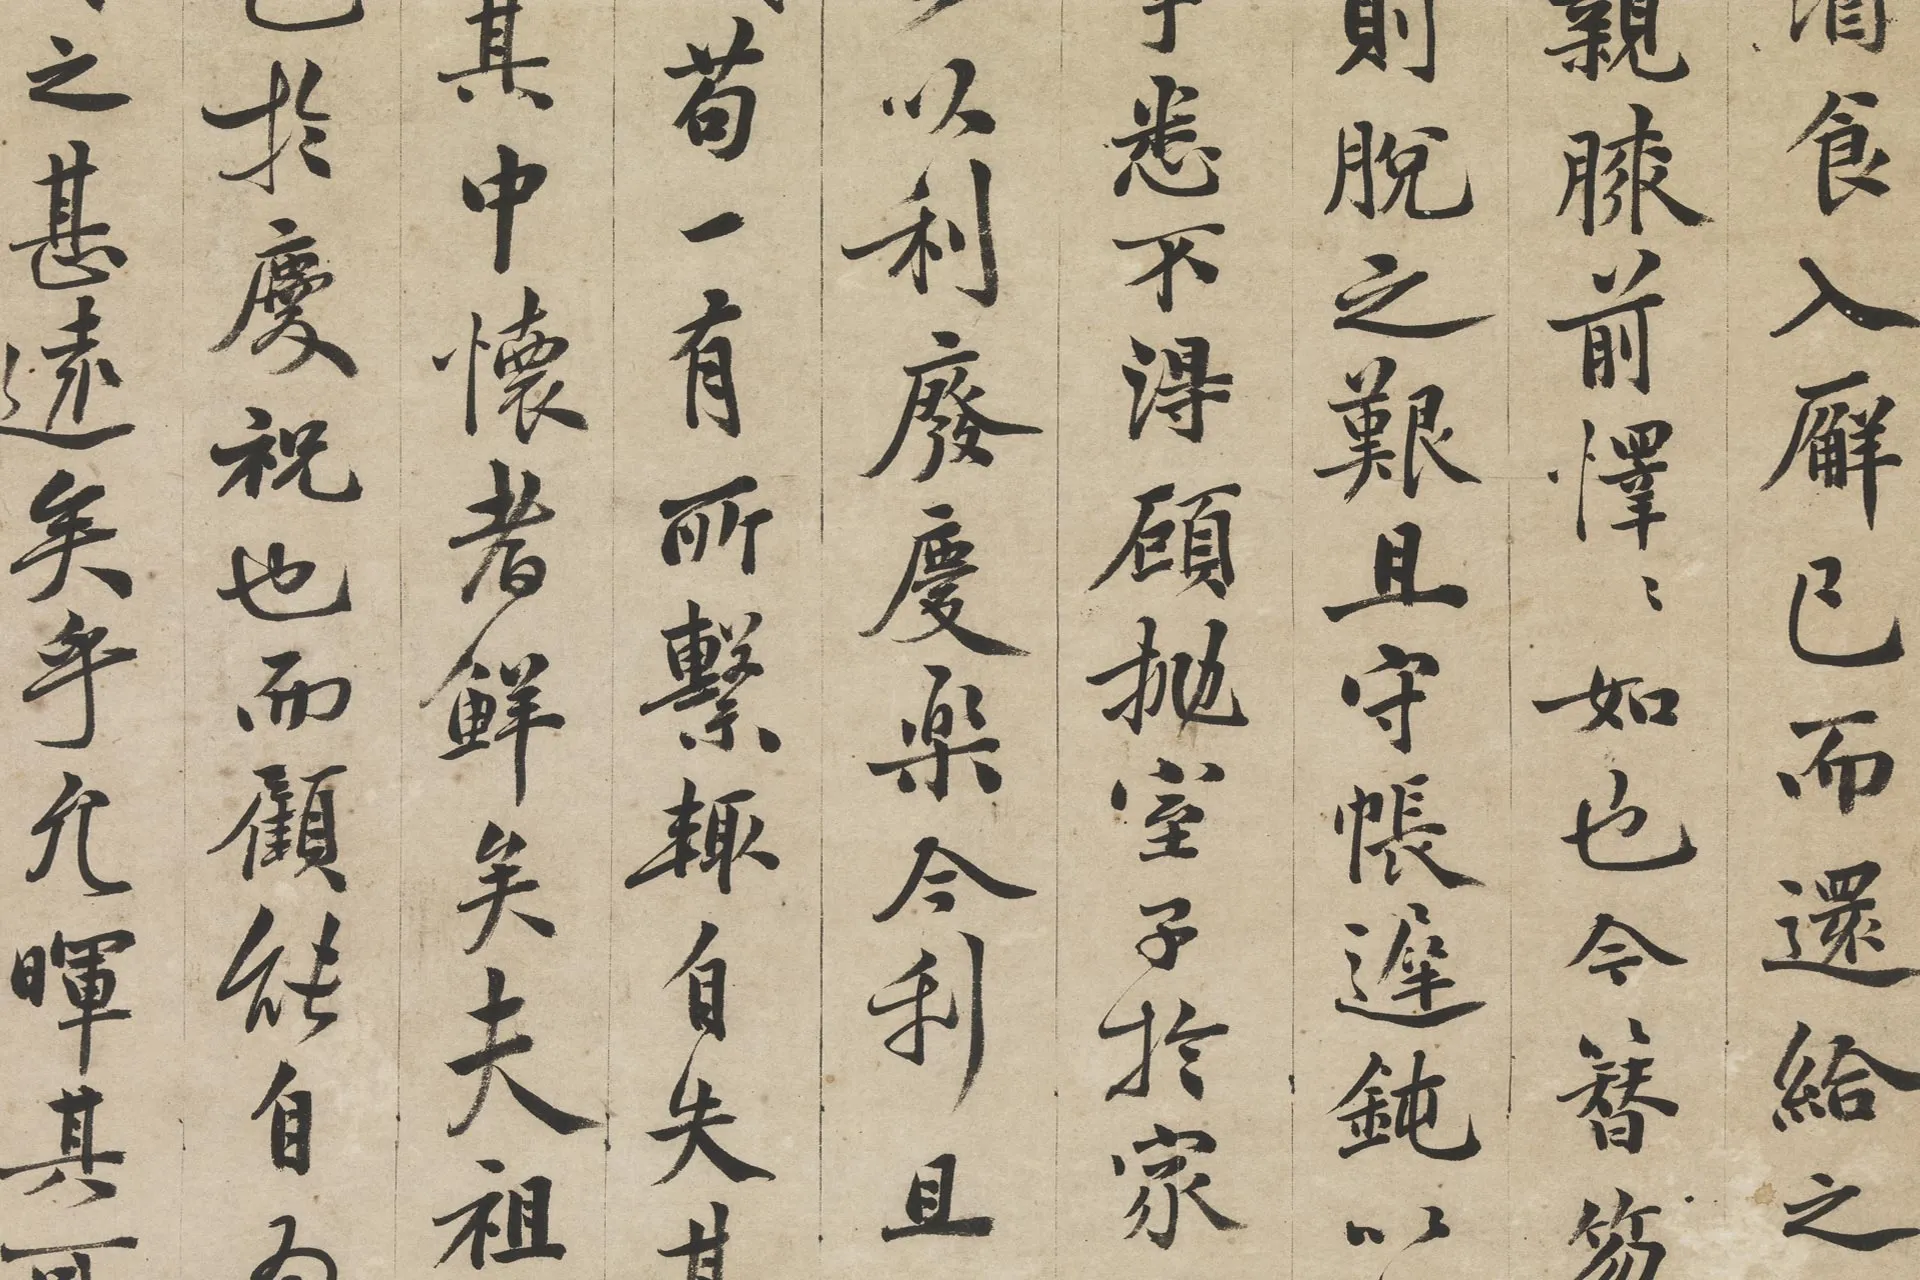 食入廨已而還給之
親膝前懌〻如也今簮笏
則脫之艱且守帳遲鈍以
悉不得顧拋室子於家
以利廢慶樂今利且
苟一有所繫輙自失其
其中懷者鮮矣夫祖
於慶祝也而顧能自為
之甚遠矣乎允暉其可